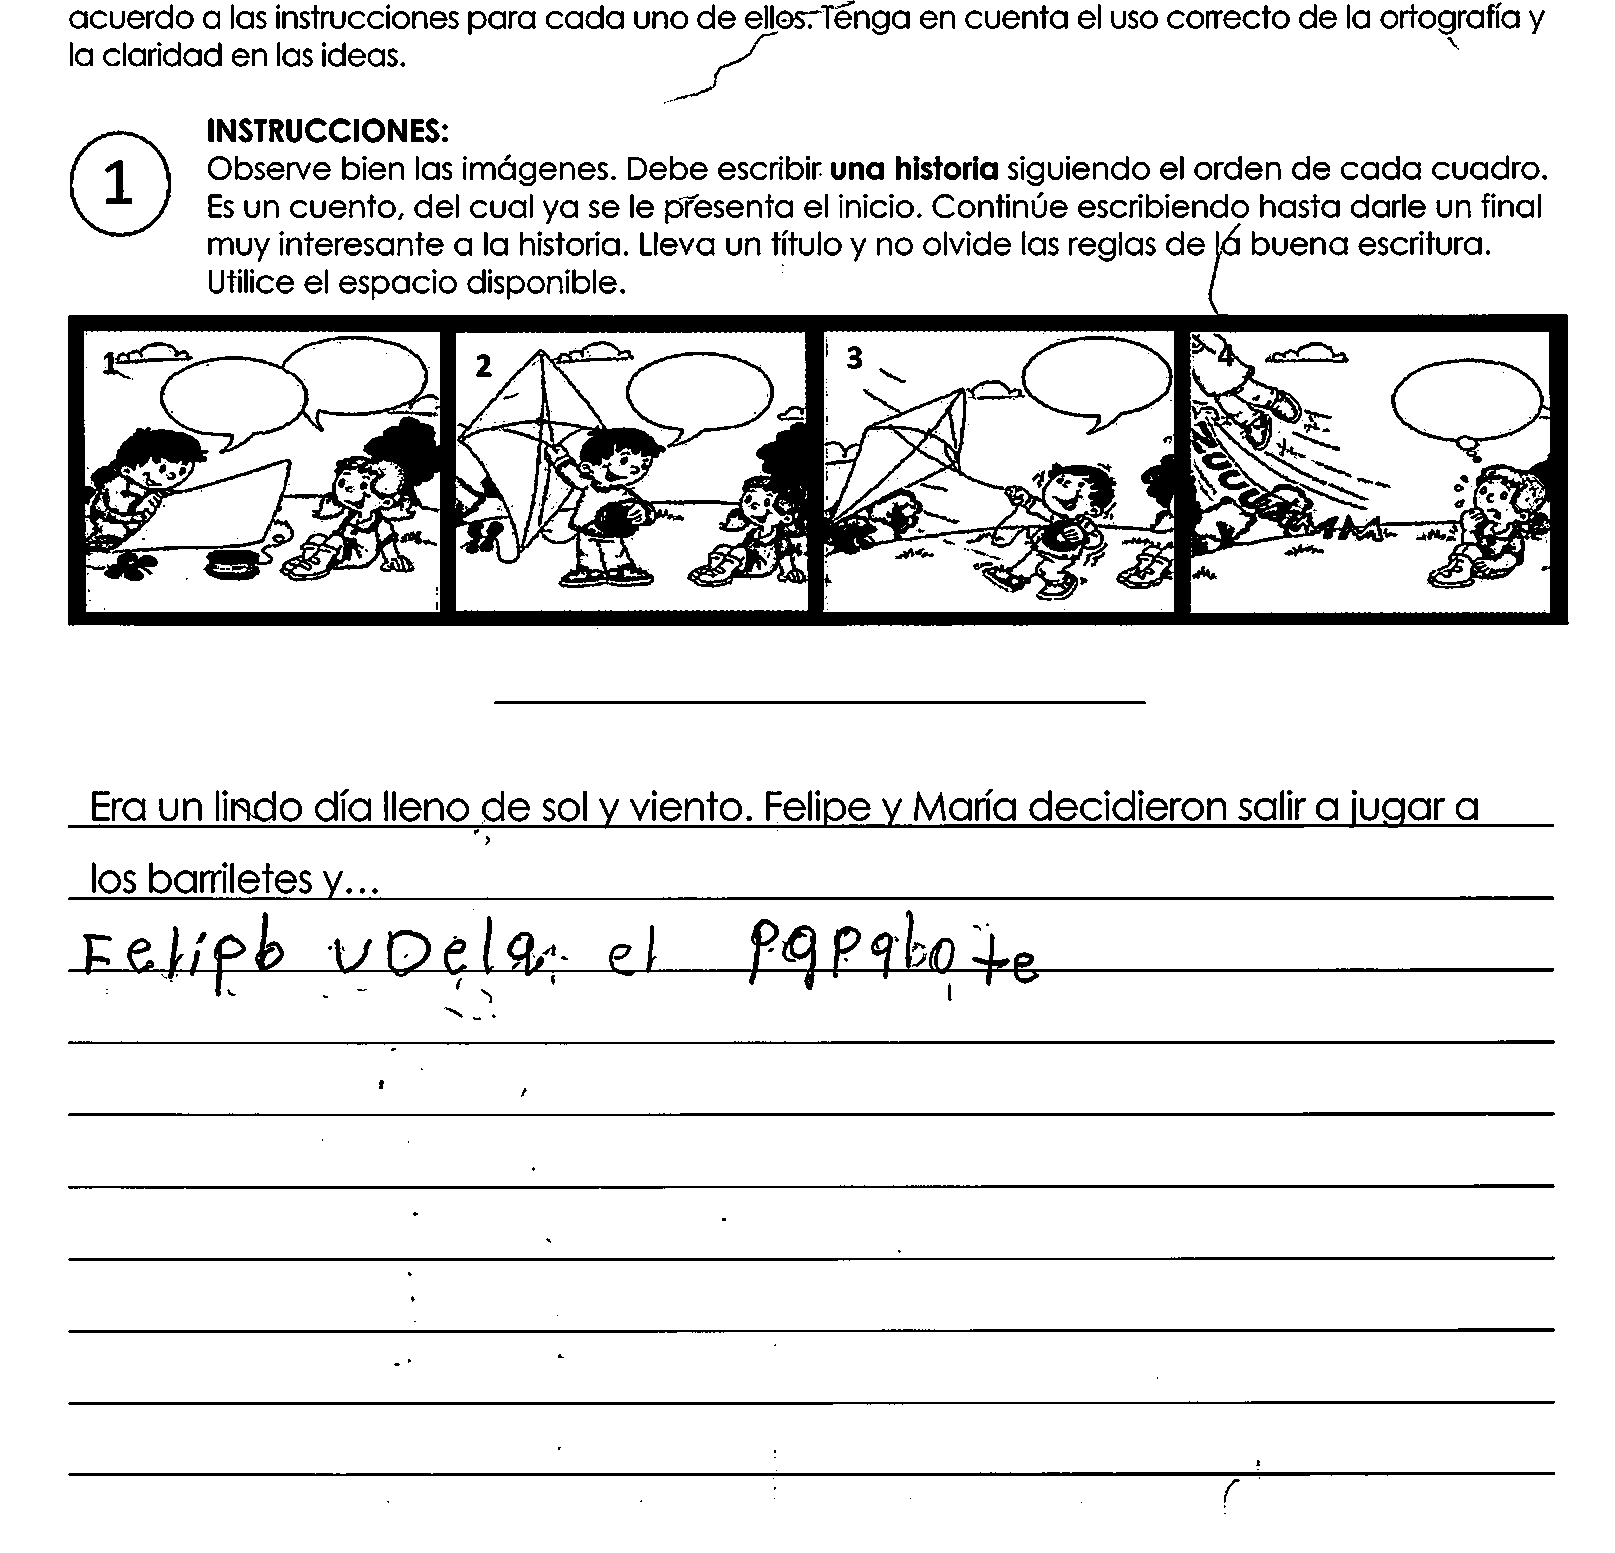 acuerdo a las instrucciones para cada uno de ellos. Tenga en cuenta el uso correcto de la ortografía y
la claridad en las ideas.
1
INSTRUCCIONES:
Observe bien las imágenes. Debe escribir una historia siguiendo el orden de cada cuadro.
Es un cuento, del cual ya se le presenta el inicio. Continúe escribiendo hasta darle un final
muy interesante a la historia. Lleva un título y no olvide las reglas de la buena escritura.
Utilice el espacio disponible.
1 2 3 4
Era un lindo día lleno de sol y viento. Felipe y María decidieron salir a jugar a
los barriletes y...
Felipb vDela el papabote